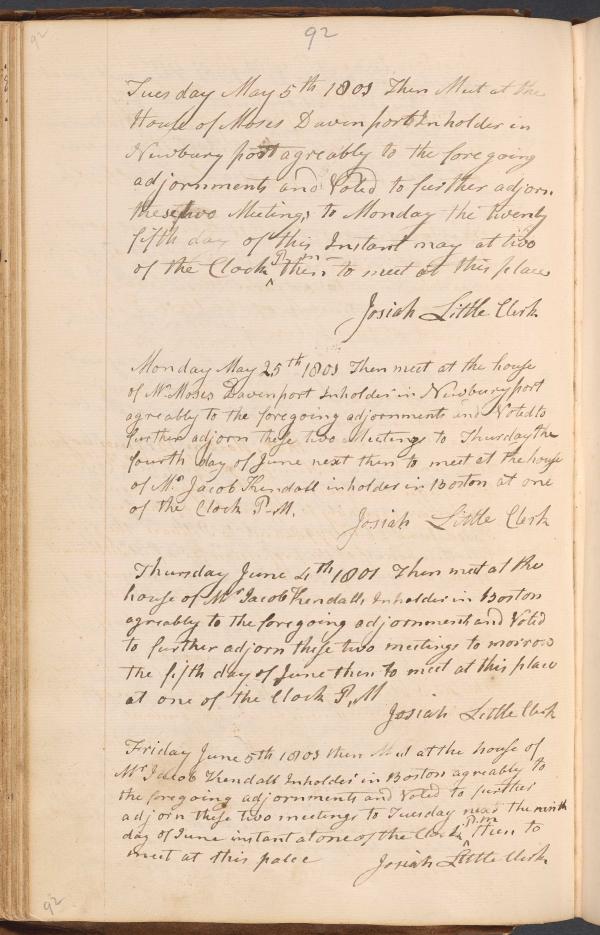 92
92
Tuesday May 5th 1801 Then Meet at the
House of Moses Davenport Inholder in
Newbury port agreably to the foregoing
adjornments and Voted to further adjorn.
these two Meetings to Monday the twenty
fifth day of this Instant may at two
of the Clock P.m then to meet at this place
Josiah Little Clerk
Monday May 25th 1801 Then meet at the house
of Mr Moses Davenport Inholder in Newburyport
agreably to the foregoing adjornments and Voted to
further adjorn these two Meetings to Thursday the
fourth day of June next then to meet at the house
of Mr Jacob Kendall inholder in Boston at one
of the Clock P.M.
Josiah Little Clerk
Thursday June 4th 1801 Then meet at the
house of Mr Jacob Kendall Inholder in Boston
agreably to the foregoing adjornments and Voted
to further adjorn these two meetings to morrow
the fifth day of June then to meet at this place
at one of the Clock P.M
Josiah Little Clerk
Friday June 5th 1801 then Meet at the house of
Mr Jacob Kendall Inholder in Boston agreably to
the foregoing adjornments and Voted to further
adjorn these two meetings to Tuesday next the ninth
day of June instant at one of the Clock P.m then to
meet at this palce
Josiah Little Clerk
92